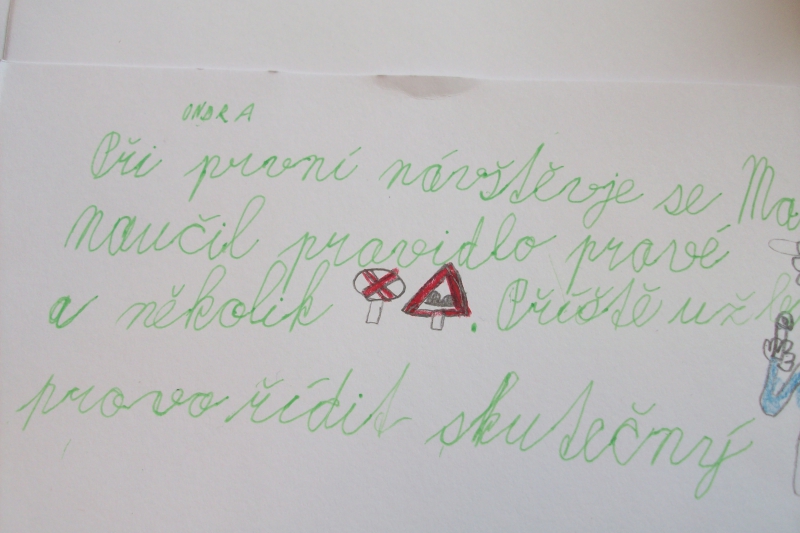 ONDRA
Při první návštěvje se Ma
naučil pravidlo pravé
a několik . Příště už
provo řídit skutečný